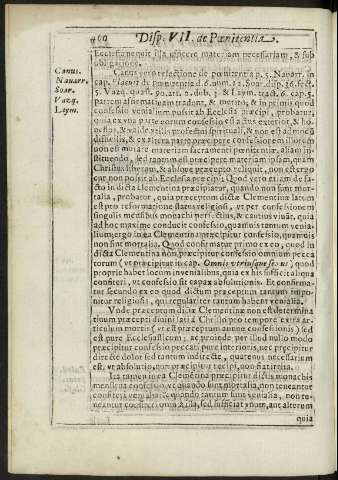 400 Disp. VII. de Pœnitentia.
Ecclesia
materiam necessariam, & sub
obligatione.
Canus.
Navarr.
Soar.
Vazq.
Laym.
Canus relectione de pœnitentia p. 5. Navarr. in
cap.
de pœnitentia d. 6. num.
Soar. disp. 36. sect.
5. Vazq. quæst. 90. art. 2. dub. 3. & Laym. tract. 6. cap. 5.
partem affirmativam tradunt, & merito, & in primis quod
confessio venialium possit ab Ecclesia præcipi, probatur,
quia ex vna parte eorum confessio est actus exterior, & ho-
nestus, & valde vtilis profectui spirituali, & non est admodum
difficilis, & ex altera parte præcipere confessionem illorum
non est mutare materiam sacramenti pœnitentiæ, aliam in-
stituendo, sed tantum est præcipere materiam ipsam, quam
Christus instituit, & absque præcepto reliquit, non est ergo
cur non possit ab Ecclesia præcipi. Quod vero etiam de fa-
cto in dicta Clementina præcipiatur, quando non sunt mor-
talia, probatur, quia præceptum dictæ Clementinæ latum
est pro reformatione status religiosi, vt per confessionem
singulis mensibus monachi perfectius, & cautius vivãt, quia
ad hoc maxime conducit confessio, quamvis tantum venia-
lium, ergo in ea Clementina præcipitur confessio, quamvis
non sint mortalia. Quod confirmatur primo ex eo, quod in
dicta Clementina non præcipitur confessio omnium pecca-
torum (vt præcipitur in cap. Omnis vtriusque sexus) quod
proprie habet locum in venialibus, quia ex his sufficit aliqua
confiteri, vt confessio sit capax absolutionis. Et confirma-
tur secundo ex eo quod dictum præceptum tantum impo-
nitur religiosis, qui regulariter tantum habent venialia.
Vnde præceptum dictæ Clementinæ non est determina
tivum præcepti divini lati à Christo pro tempore extra ar-
ticulum mortis (vt est præceptum annuæ confessionis) sed
est pure Ecclesiasticum; ac proinde per illud nullo modo
præcipitur confessio peccati pure interioris, nec præcipitur
directè dolor sed tantum indirectè, quatenus necessarium
est, vt absolutio, non præcipitur recipi, non fiat irrita.
Ita tamen in ea Clementina præcipitur dictis monachis
menstrua confessio, vt quando sunt mortalia, non teneantur
confiteri venialia: & quando tantum sunt venialia, non te-
neantur confiteri omnia illa, sed sufficiat vnum, aut alterum
quia